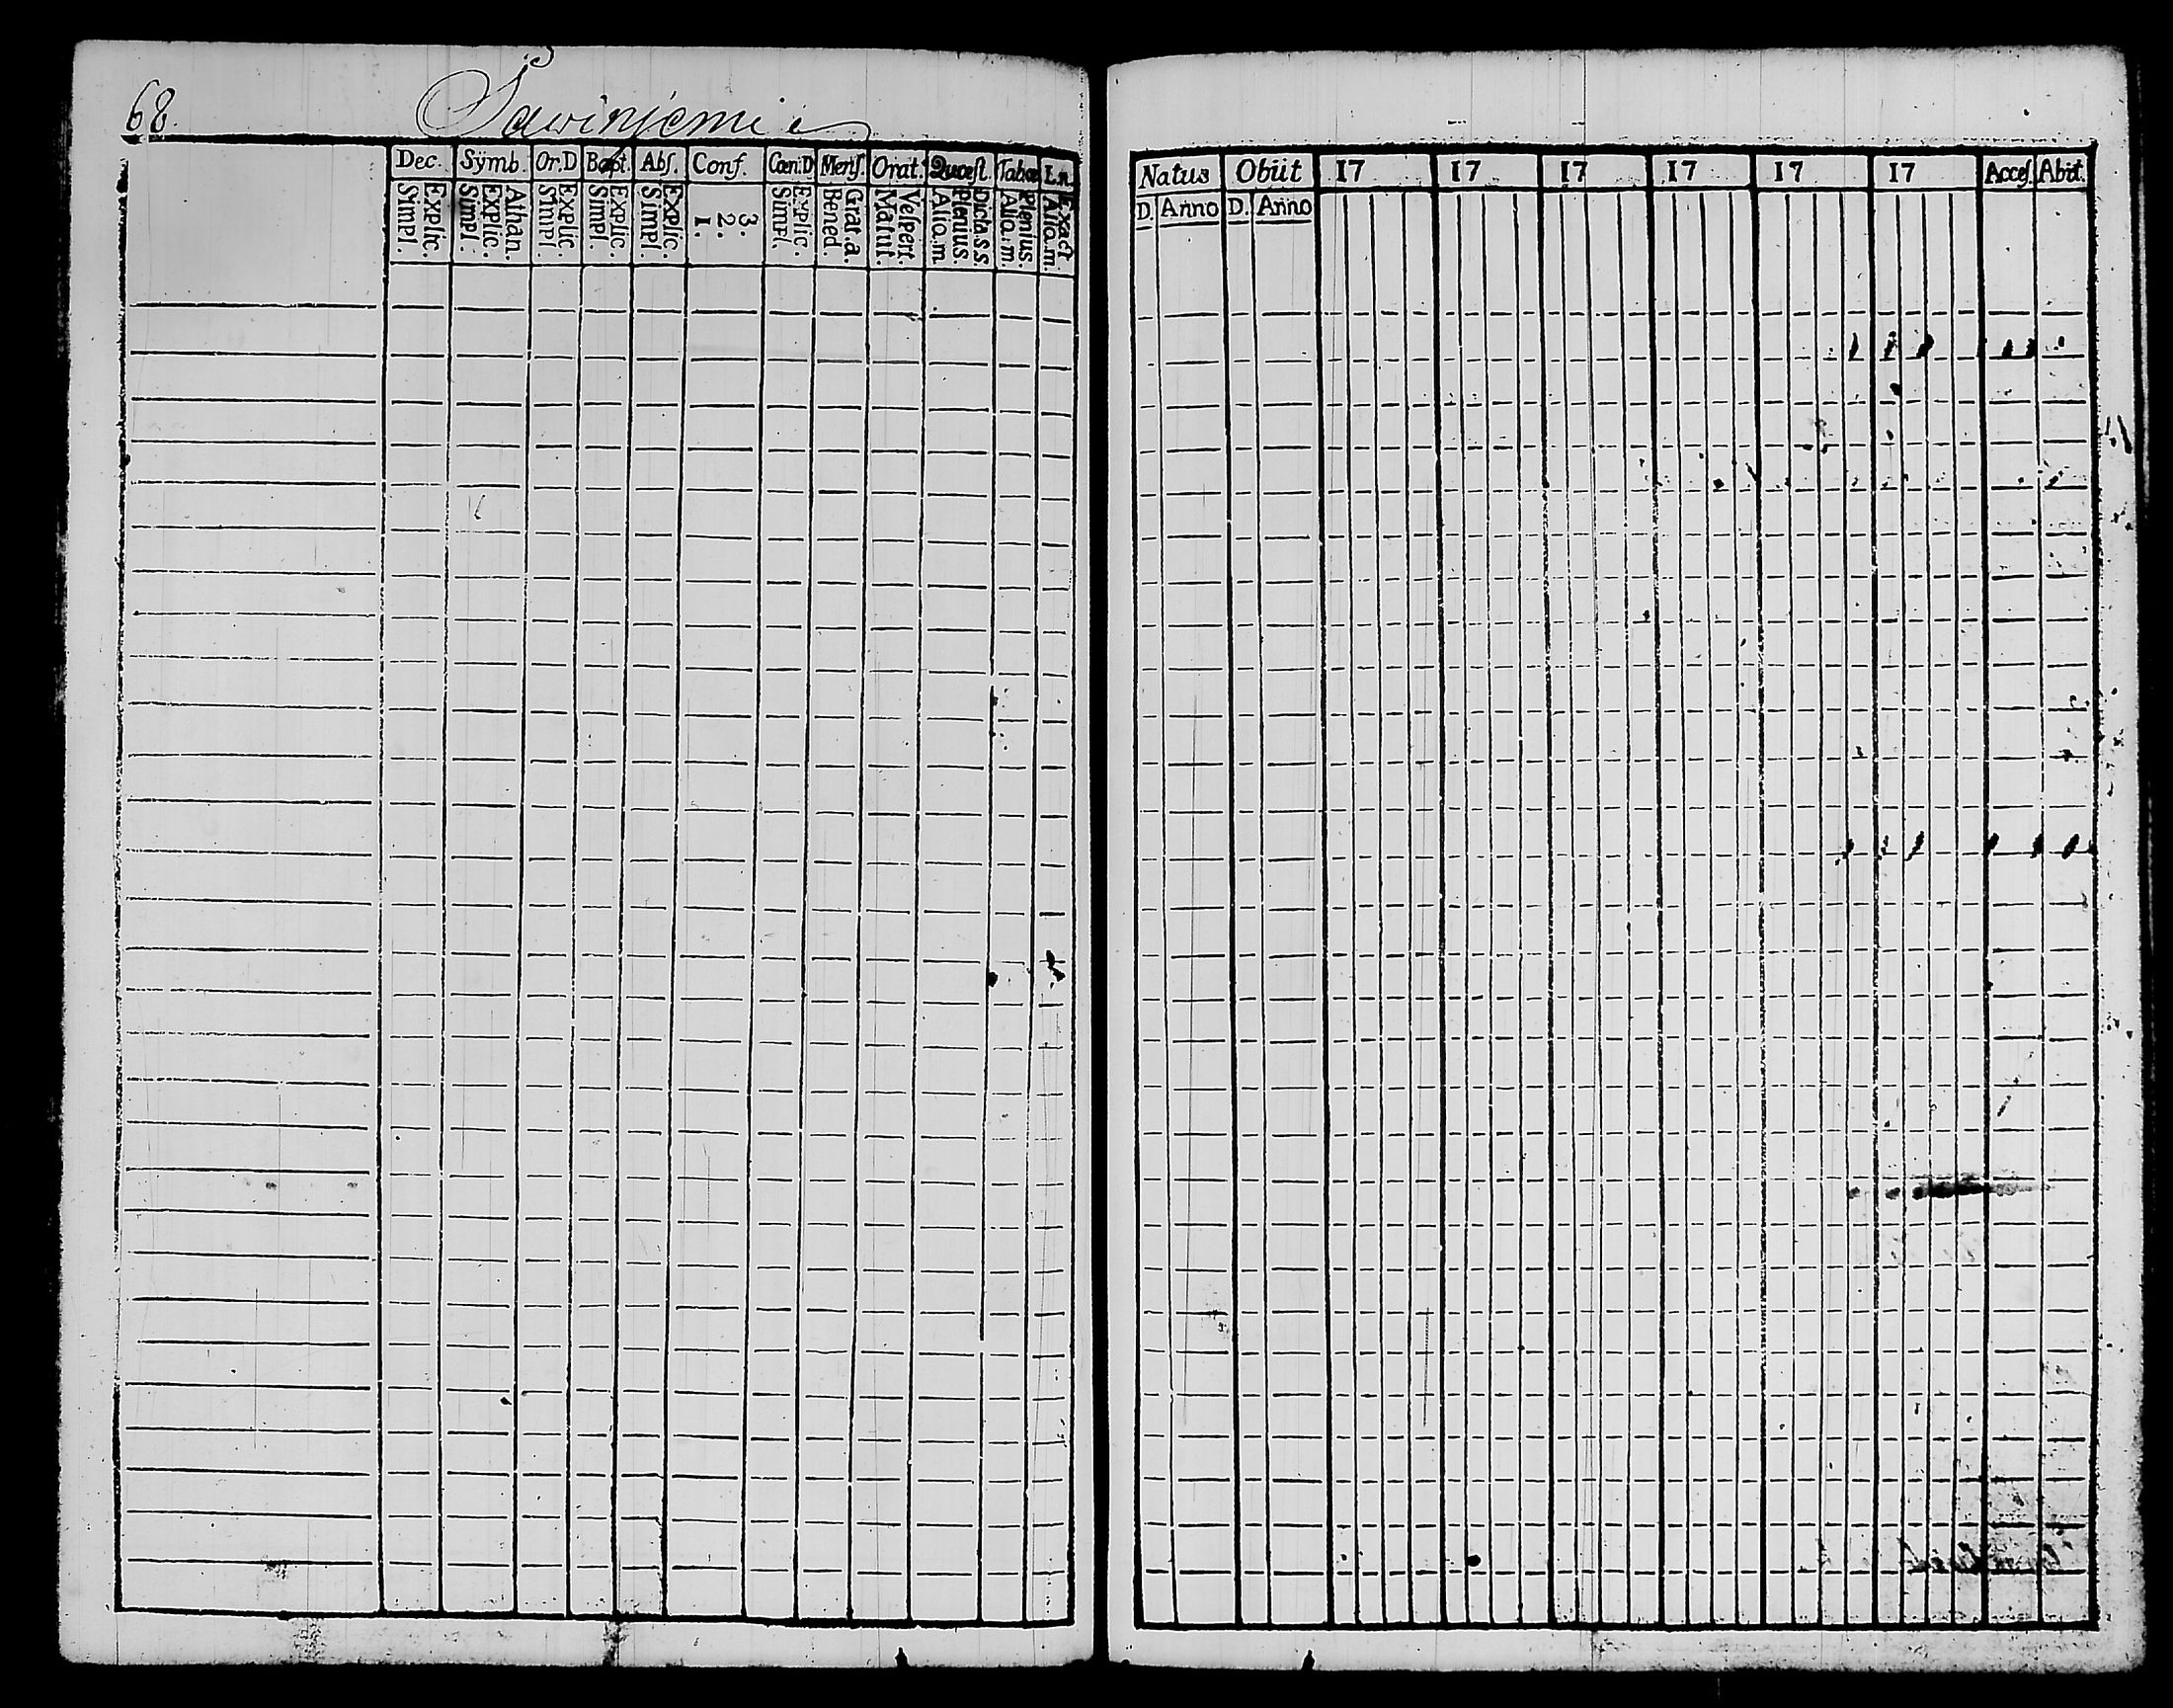 68. Sawinjemi
Dec. Sÿmb. Or.D Bapt. Abſ. Conf. Cœn.D Menſ. Orat. Quœſt. Tabœ L.n.
Explic. Simpl. Athan. Explic. Simpl. Explic Simpl. Explic. Simpl. Explic. Simpl. 3. 2. 1. Explic. Simpl. Grat.a. Bened. Veſpert. Matut. Dicta.s.s. Plenius. Alio.m Plenius. Alio.m. Exact. Alio.m.
Natus Obiit 17 17 17 17 17 17 Acceſ. Abit.
D. Anno D. Anno